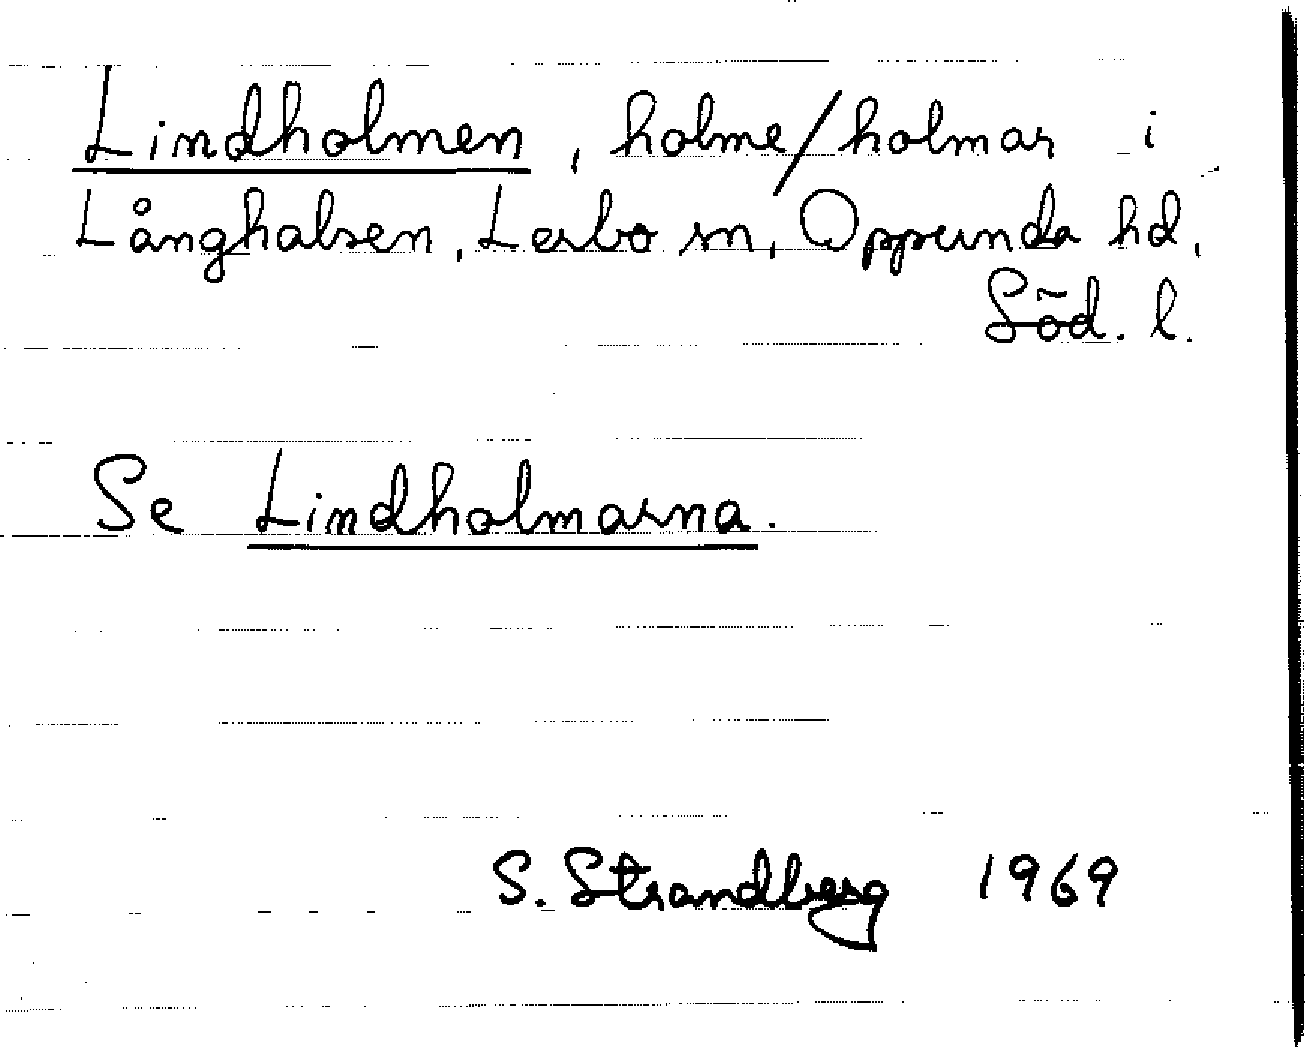 Lindholmen, holme/holmar i
Långhalsen, Lerbo sn, Oppunda hd,
Söd. l.
Se Lindholmarna.
S. Strandberg 1969